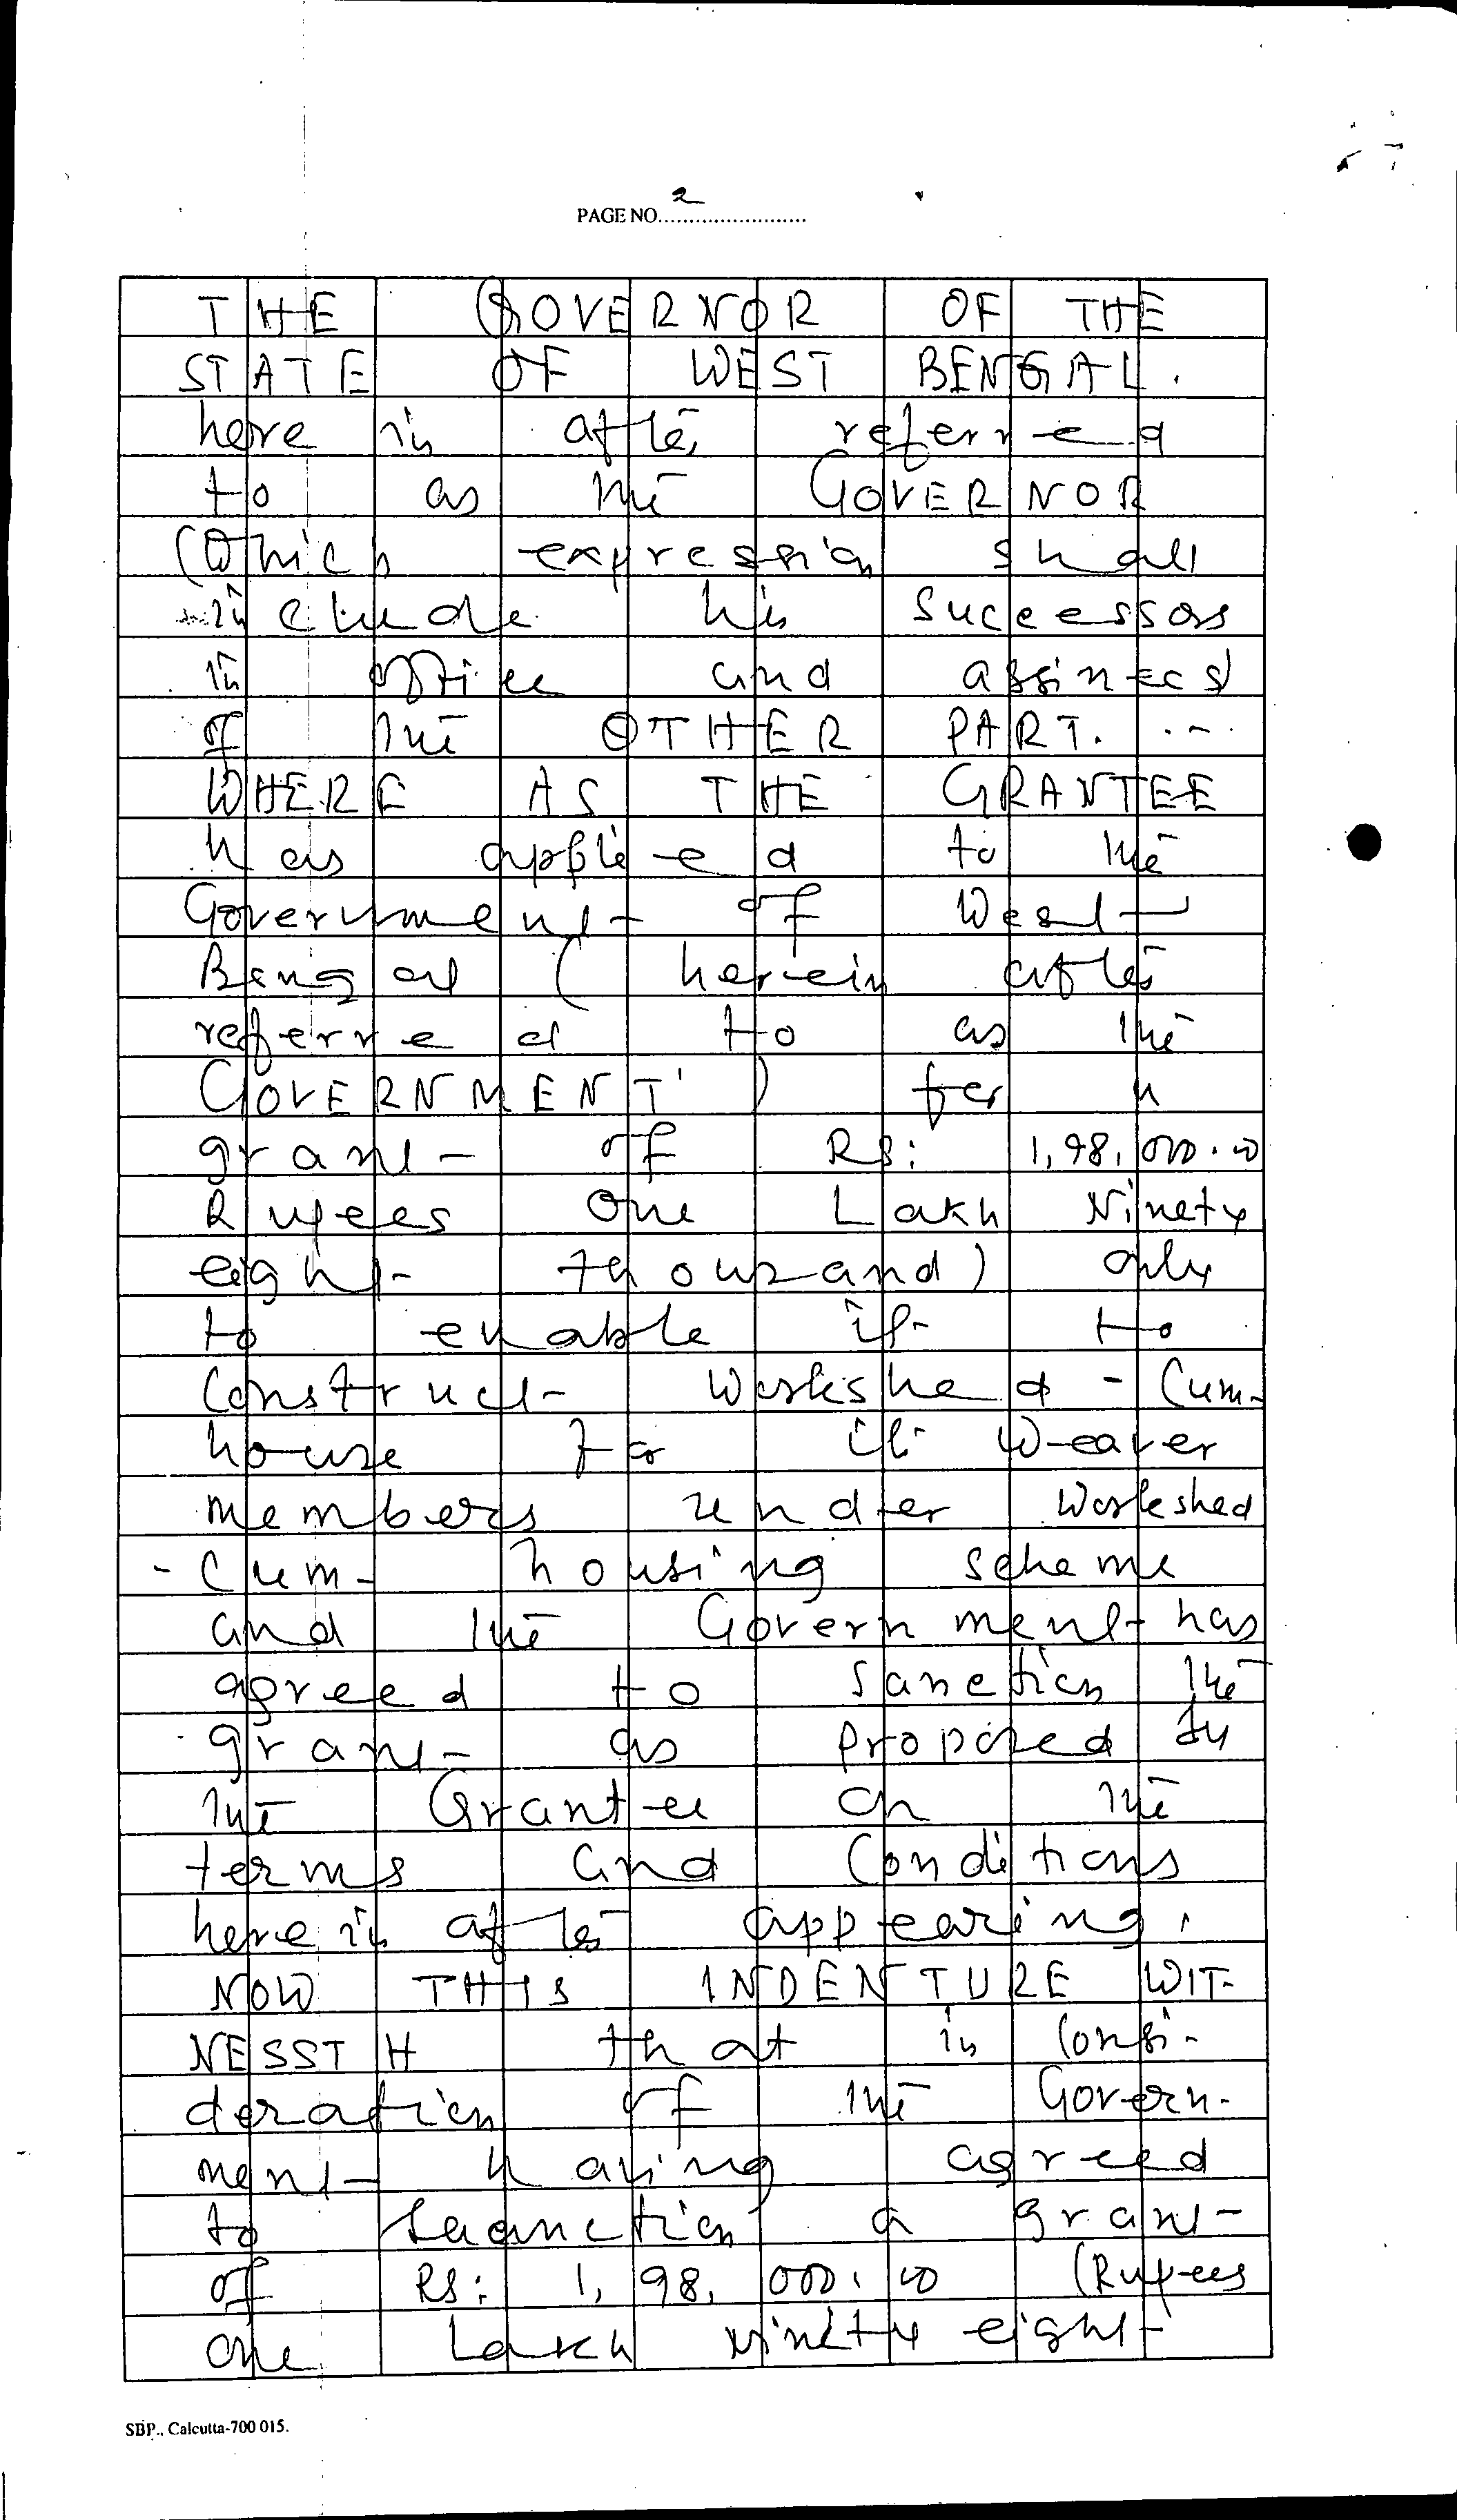 PAGE NO. 2
THE GOVERNOR OF THE
STATE OF WEST BENGAL.
here in after referred
to as the GOVERNOR
(Which expression shall
include his successors
in office and assinees)
of the OTHER PART. ...
WHERE AS THE GRANTEE
has applied to the
Government of West
Bengal ( herein after
referred to as the
GOVERNMENT' ) for a
grant of Rs: 1,98,000.00
Rupees One Lakh Ninety
eight thousand) only
to enable it to
construct workshed - Cum-
house for it weaver
members under Workshed
- Cum- housing scheme
and the Government has
agreed to sanction the
grant as proposed by
the Grantee on the
terms and conditions
here in after appearing.
NOW THIS INDENTURE WIT-
NESSTH that in consi-
deration of the Govern-
ment having agreed
to saanction a grant
of RS: 1,98,000.00 (Rupees
one Lakh ninety eight
SBP., Calcutta-700 015.